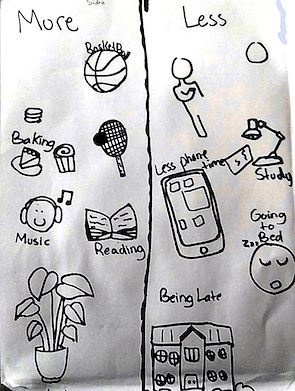 Sidra
More
Less
BasketBall
Baking
Less phone
time
Study
Music
Reading
Going
to
Bed
Zzz
Being Late